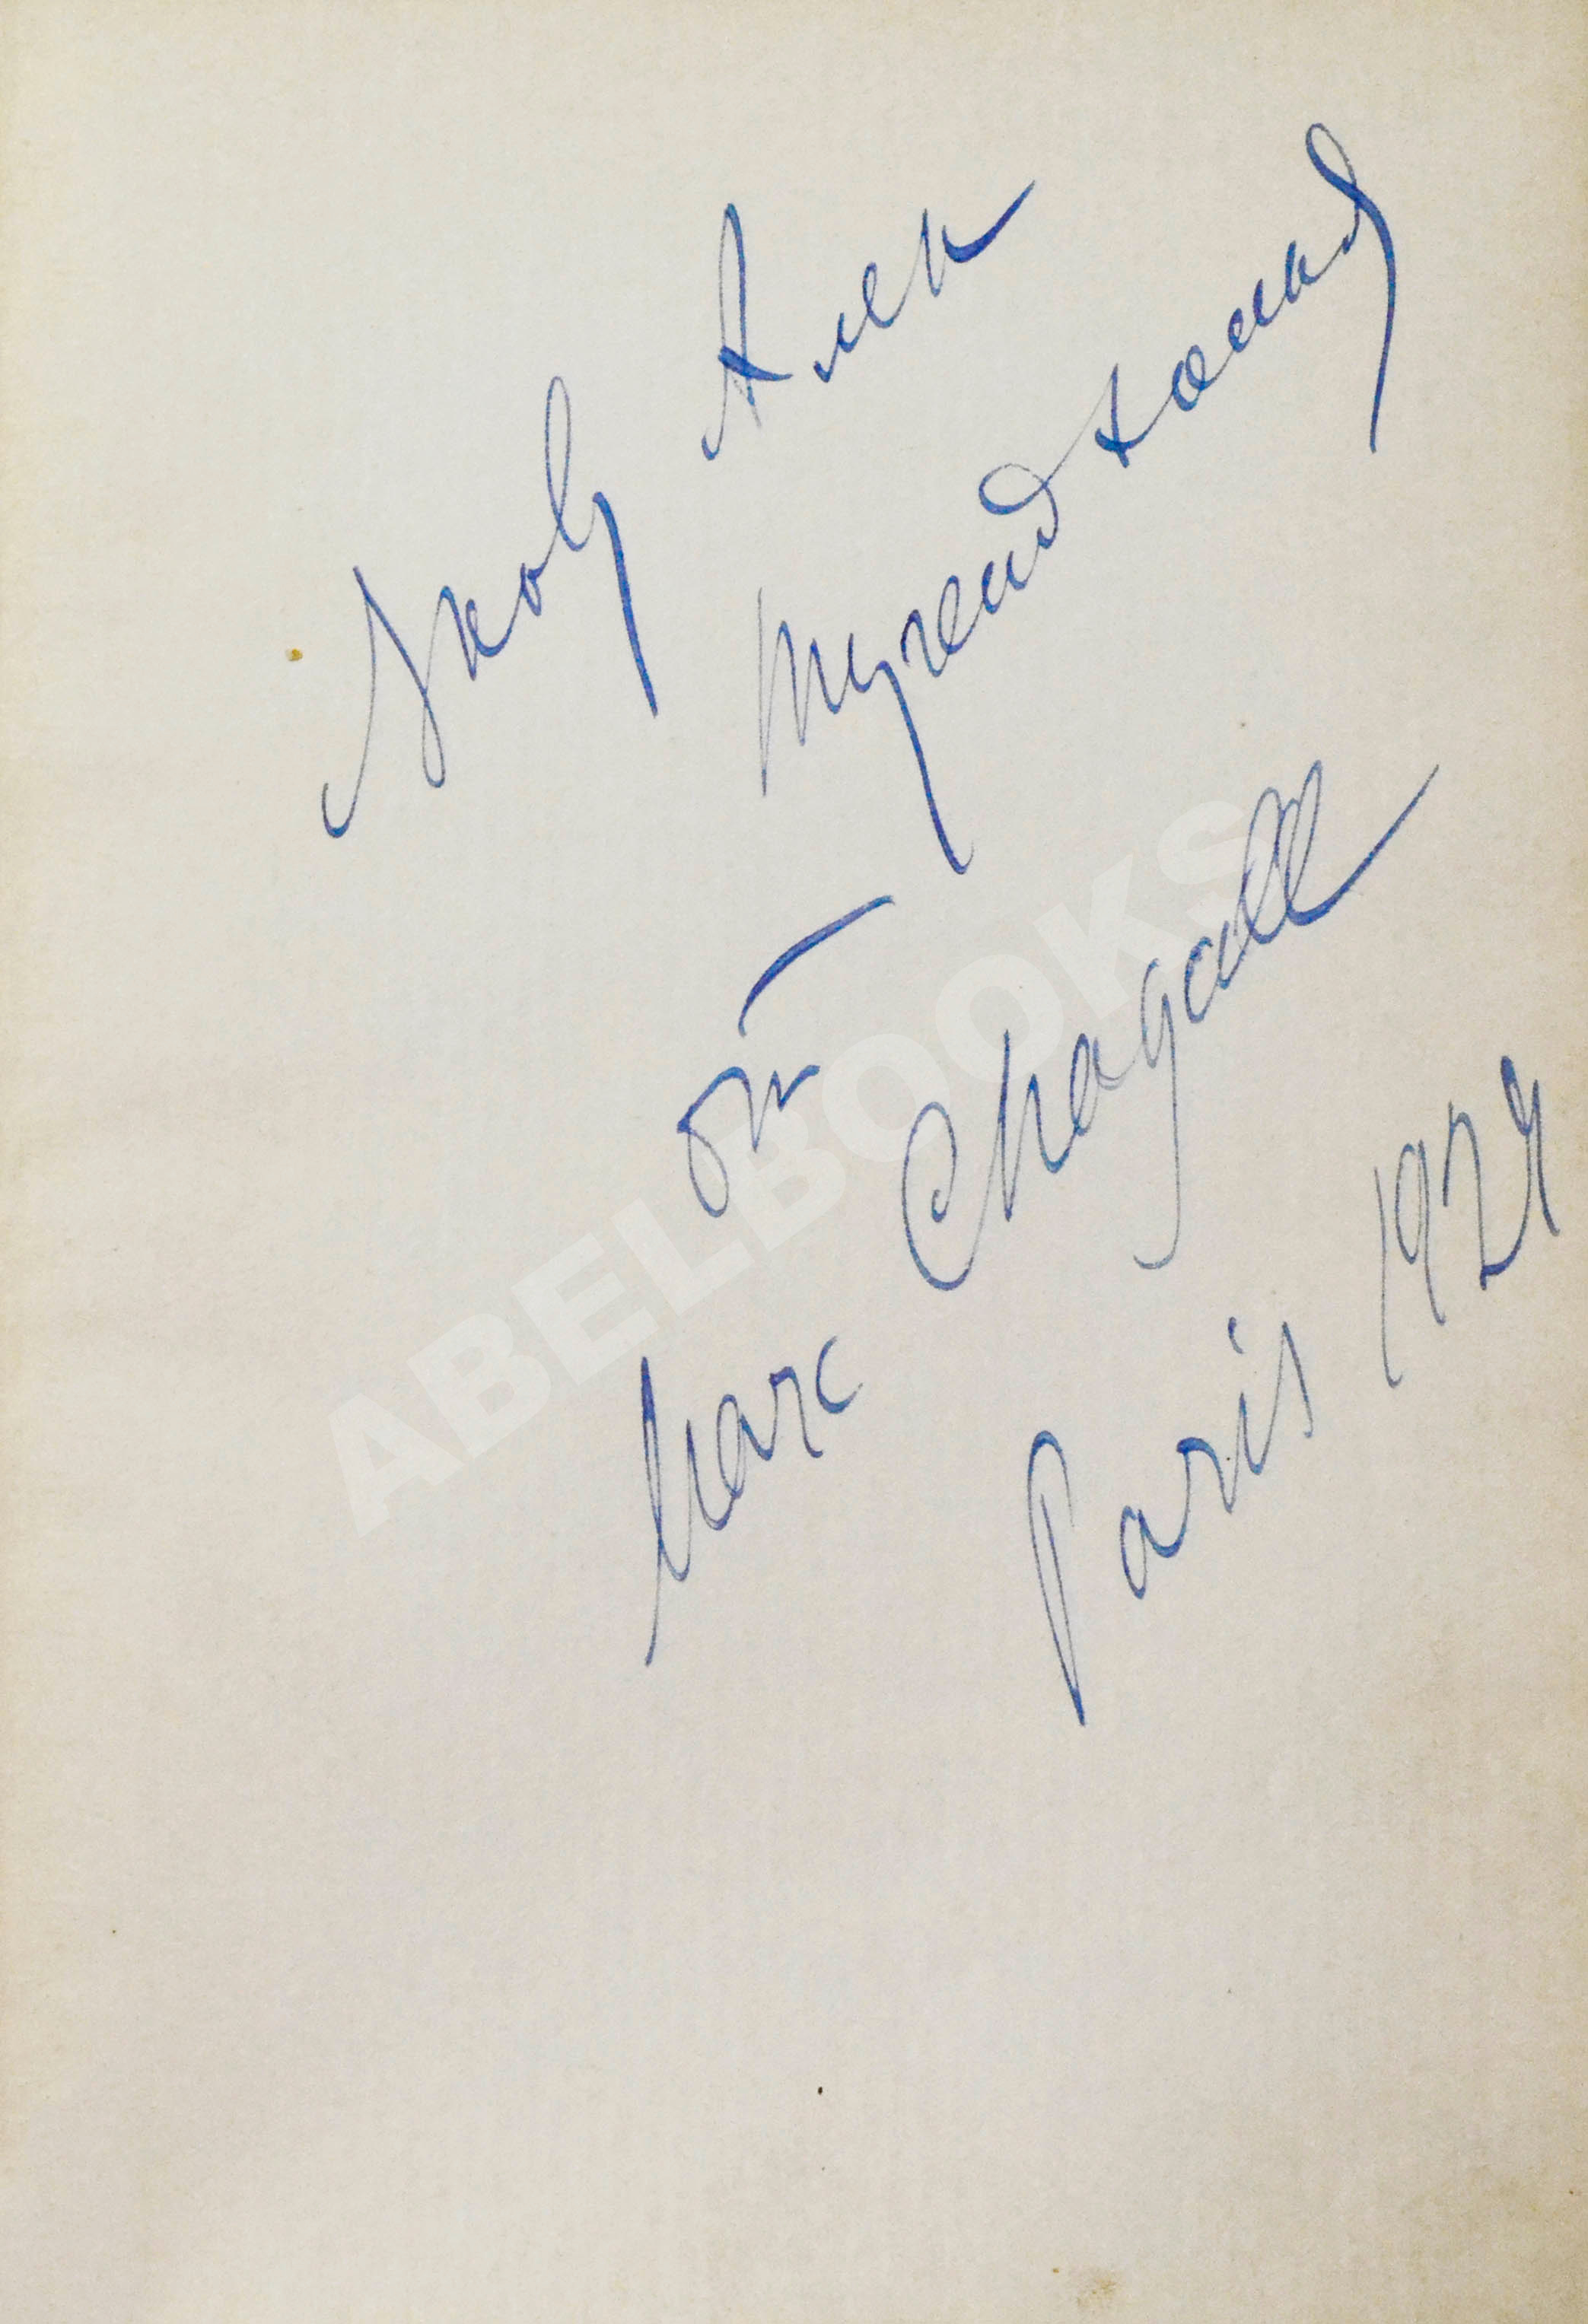 Якову Алек
Тугендхольд
от
Marc Chagall
Paris 1924
ABELBOOKS